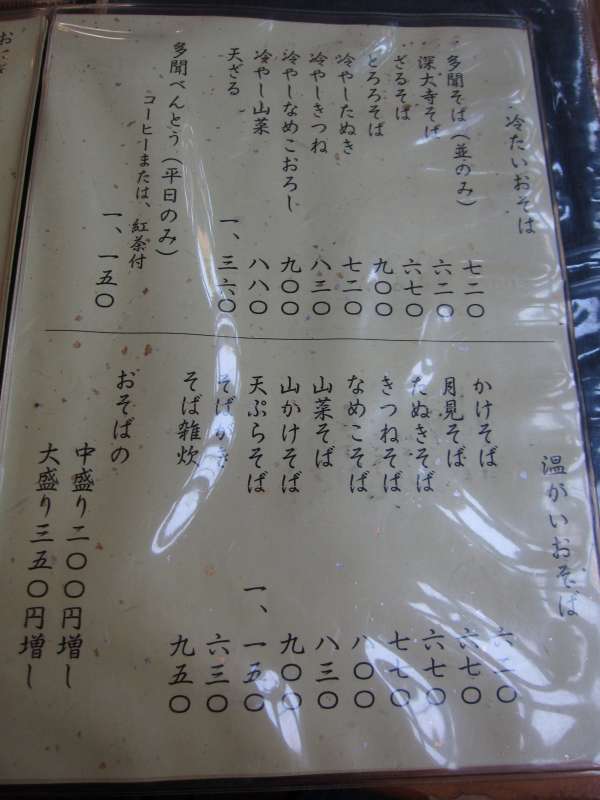 冷たいおそば
多聞そば(並のみ) 七二〇
深大寺そば 六二〇
ざるそば 六七〇
とろろそば 九〇〇
冷やしたぬき 七二〇
冷やしきつね 八三〇
冷やしなめこおろし 九〇〇
冷やし山菜 八八〇
天ざる 一、三六〇
多聞べんとう(平日のみ)
コーヒーまたは、紅茶付
一、一五〇
温がいおそば
かけそば 六二〇
月見そば 六七〇
たぬきそば 六七〇
きつねそば 七七〇
なめこそば 八〇〇
山菜そば 八三〇
山かけそば 九〇〇
天ぷらそば 一、一五〇
そばがき 六三〇
そば雑炊 九五〇
おそばの
中盛り二〇〇円増し
大盛り三五〇円増し